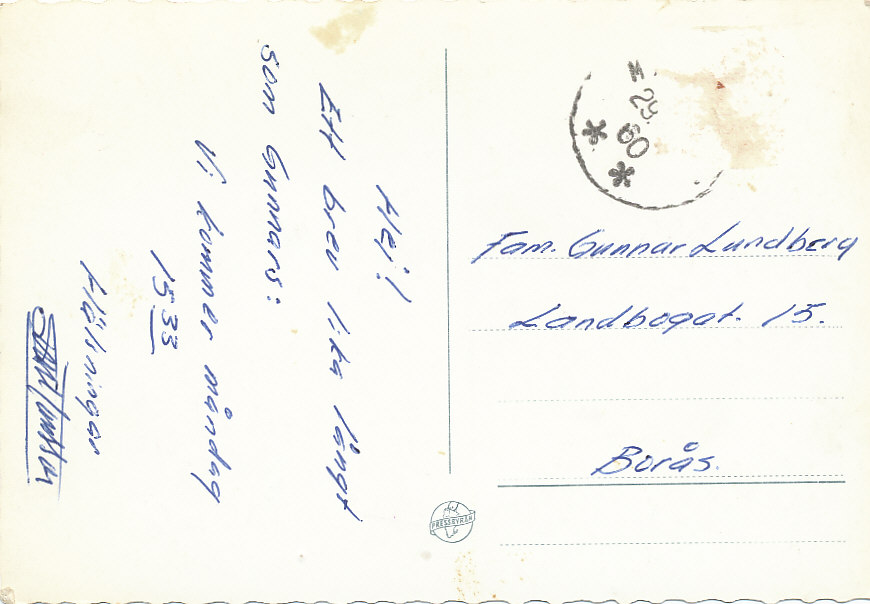 Hej!
Ett brev lika långt
som Gunnars:
Vi kommer måndag
15 33
Hälsningar
29
60
Fam. Gunnar Lundberg
Landbogat. 15.
Borås.
PRESSBYRÅN